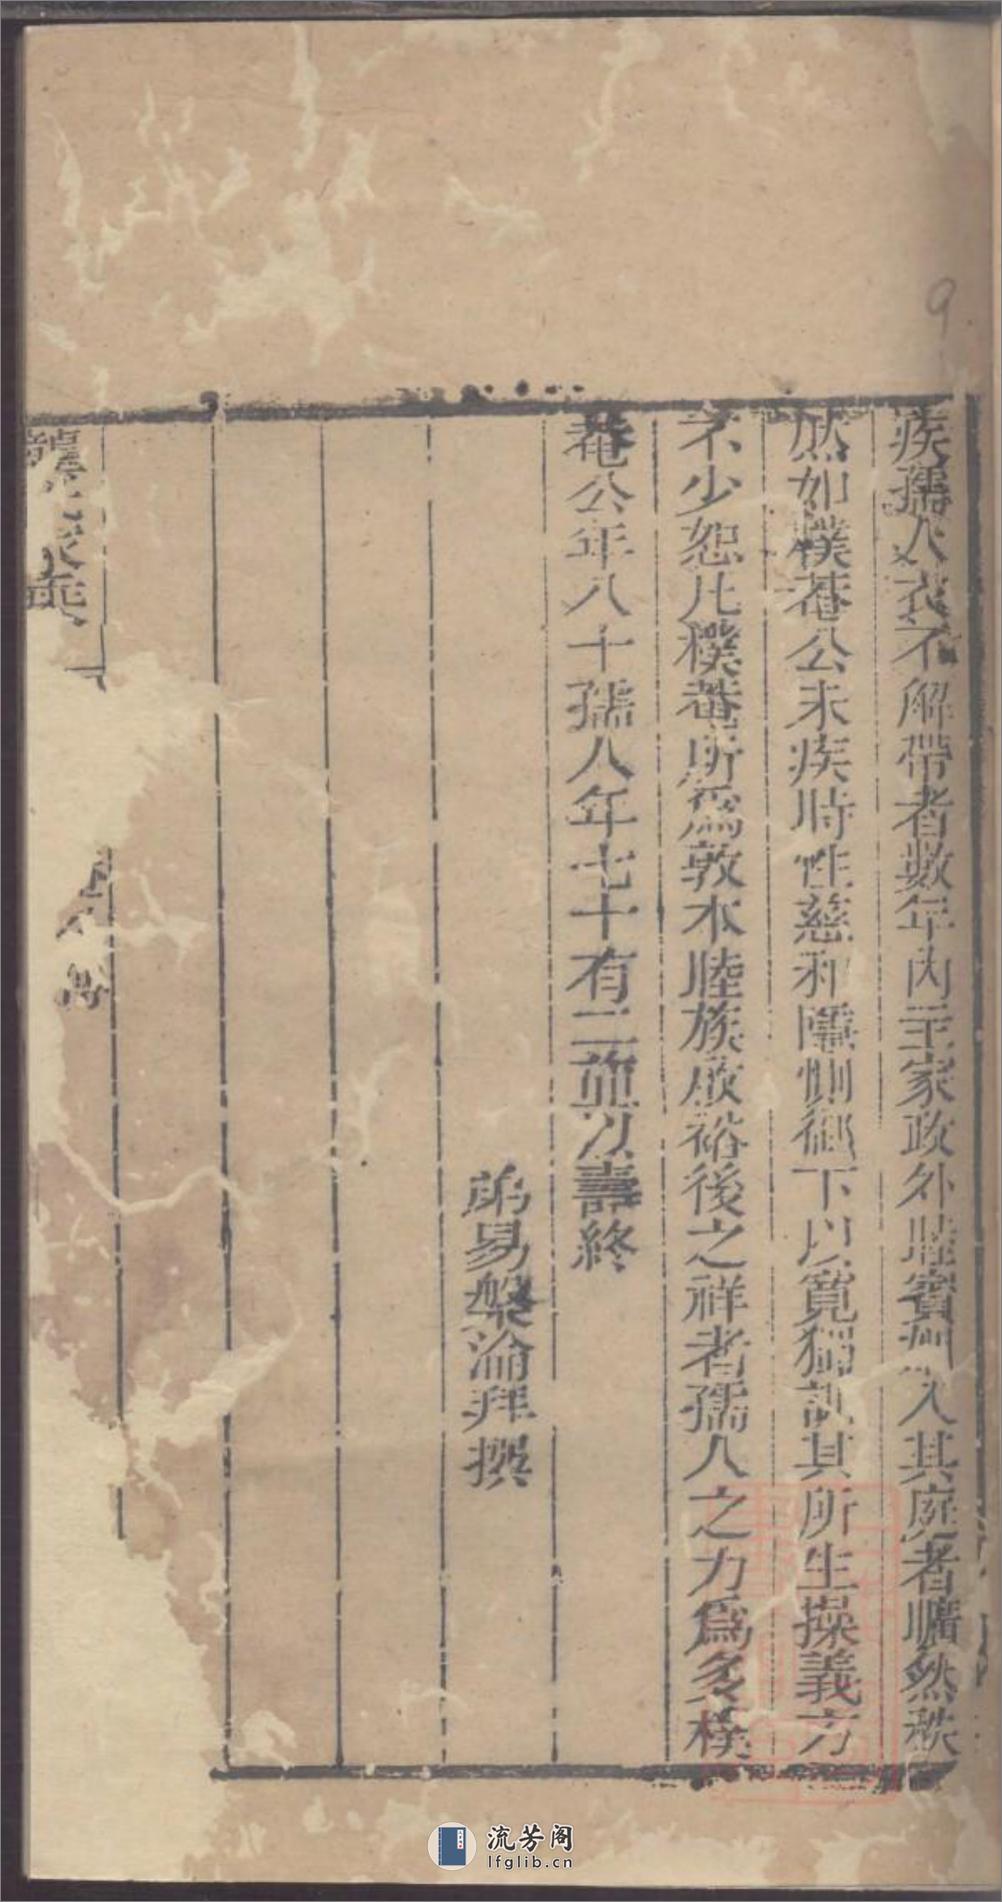 疾孺人衣不解帶者數年內主家政外睦賓朋入其庭者曠然秩
然如樸菴公未疾時性慈和隱惻御下以寬獨訓其所生操義方
不少恕凡樸菴所為敦本睦族啟裕後之祥者孺人之力為多樸
菴公年八十孺人年七十有二並以壽終
易槃淪拜撰
龔氏家乘
流芳阁
lfglib.cn
9